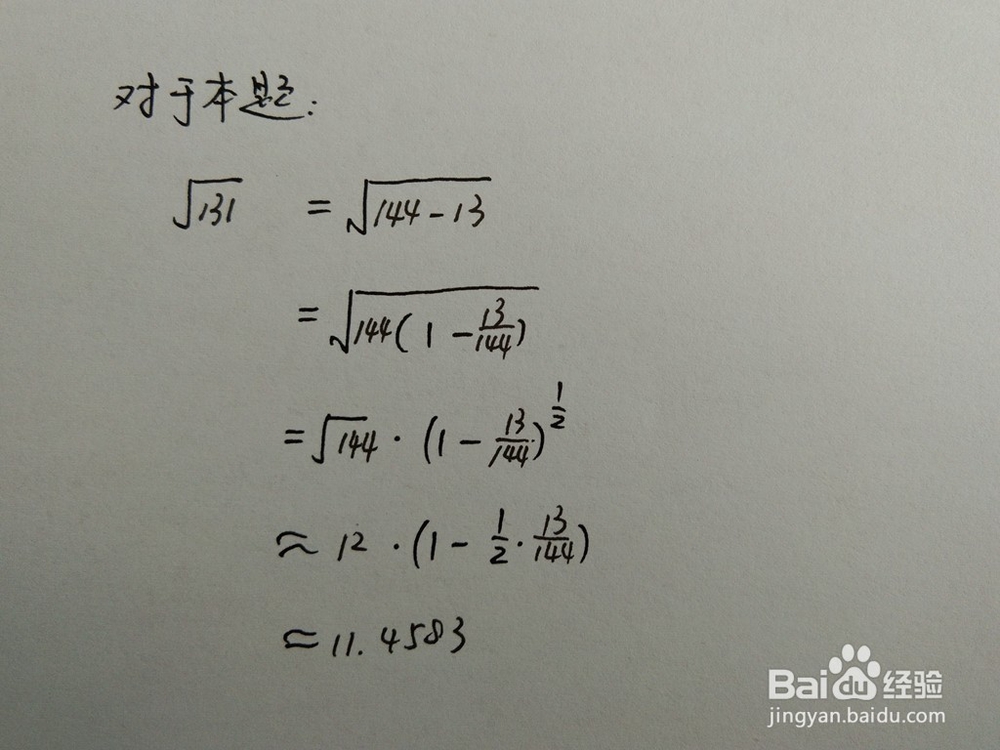 对于本题:
√131 = √(144-13)
= √(144(1-13/144))
= √144 · (1-13/144)^(1/2)
≈ 12 · (1-1/2·13/144)
≈ 11.4583
Baidu 经验
jingyan.baidu.com